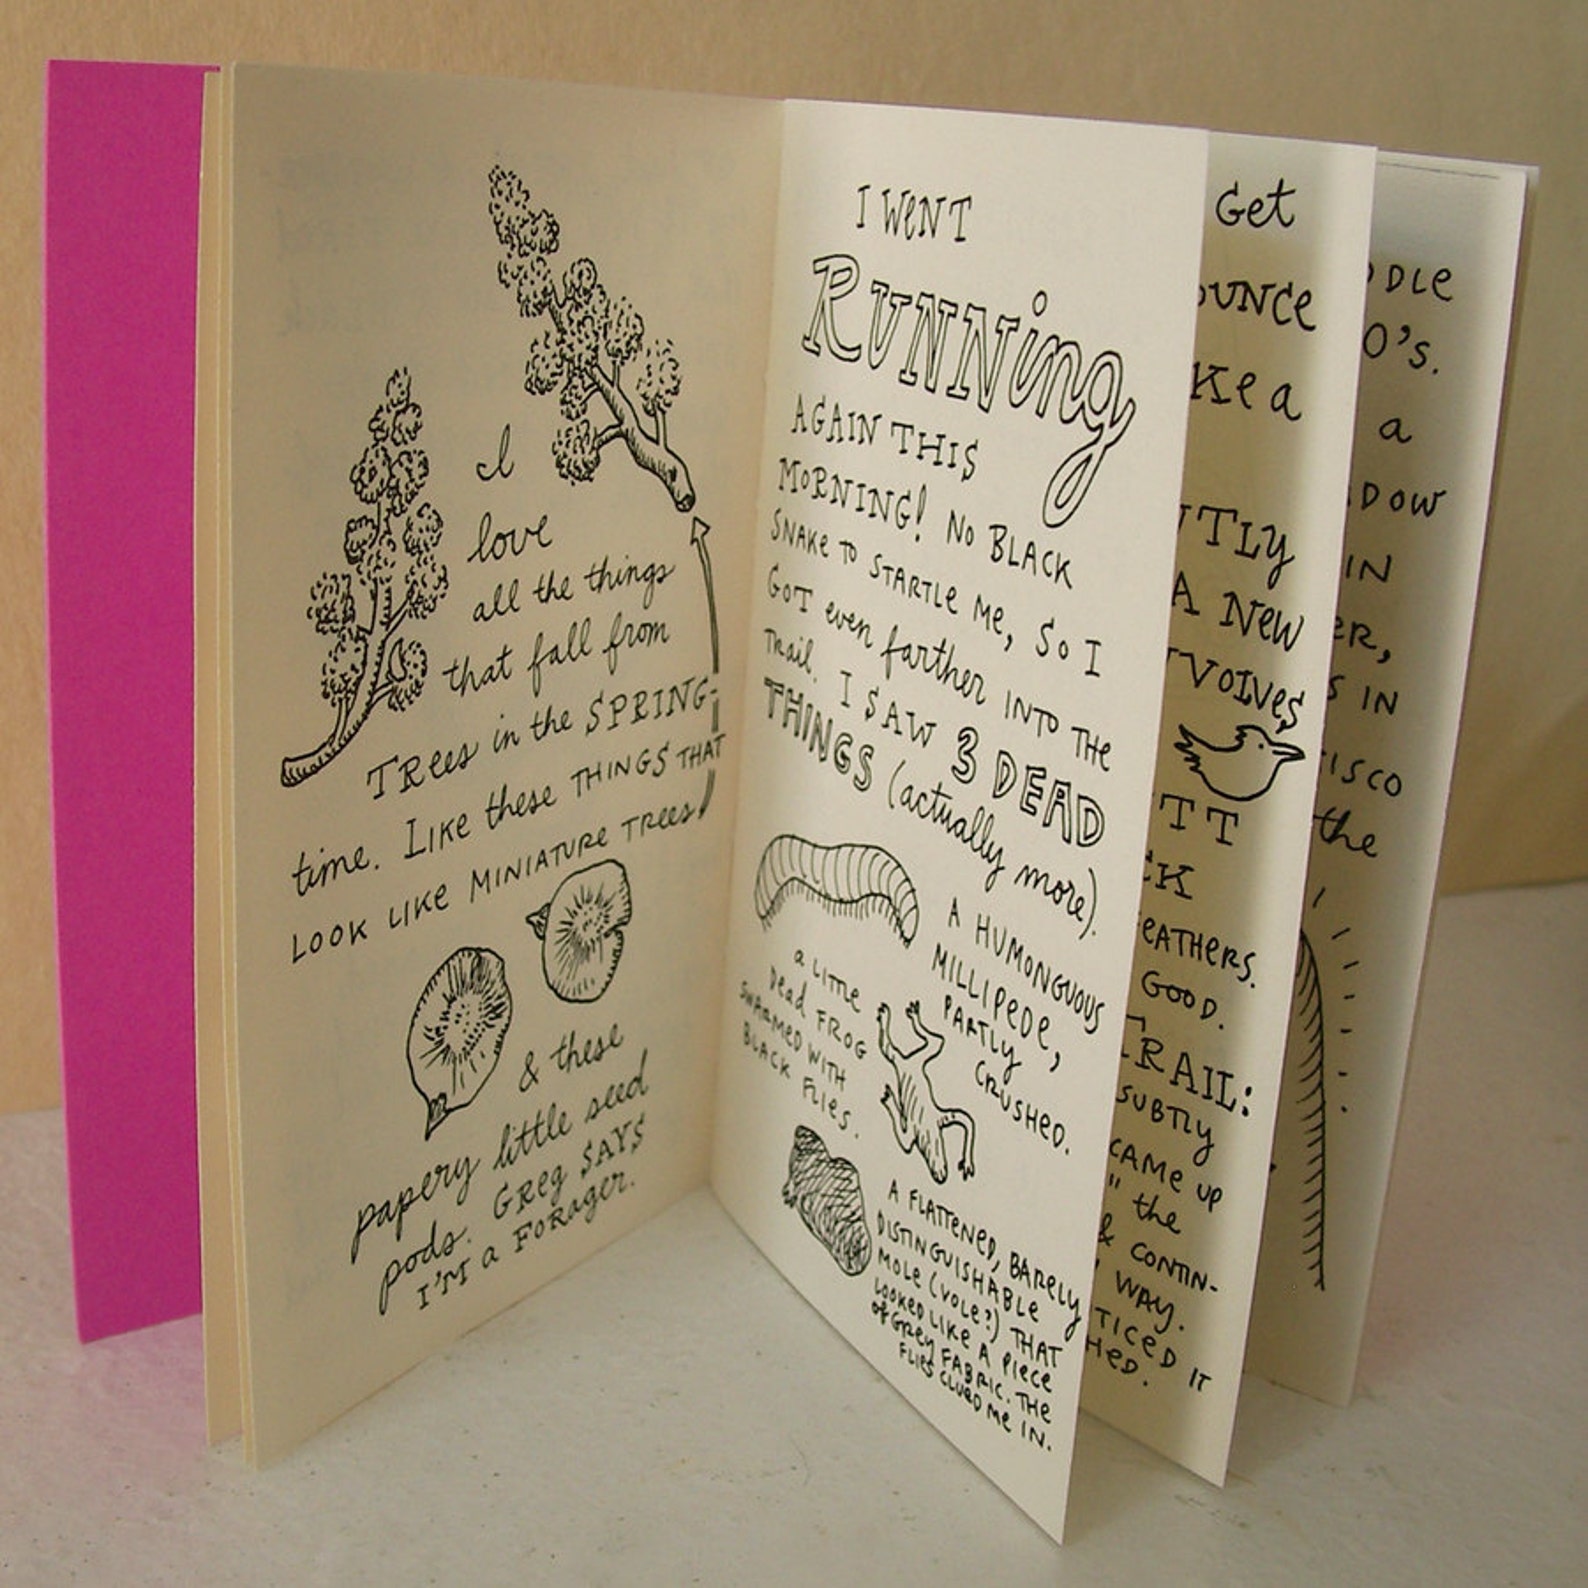 I
love
all the things
that fall from
TRees in the SPRING-
time. LIKe these THINGS THAT
LOOK LIKe MINIATURE TRees
& these
papery little seed
pods. GReg SAYS
I'M a FoRager.
I WeNT
RUNNing
AGAIN THIS
MORNING! No BLACK
SNAKe To STARTLe Me, So I
GoT even farther INTO THe
TRail. I SAW 3 DEAD
THINGS (actually more).
A HUMONGUOUS
MILLIPeDe,
PARTLy
CRUSHeD.
a LiTTLe
Dead FROG
SWARMED WITH
BLACK FLIeS.
A FLATTENeD, BARely
DISTINGUISHABLe
MOLe (VOLe?) THAT
LOOKeD LIKe A PIeCe
of GRey FABRIC. THe
FLIeS CLUeD Me IN.
Get
OUNCe
Ke a
TLy
A NeW
VOLVeS
TT
CK
EATHeRS.
GOOD.
TRAIL:
SUBTLy
CAMe UP
" the
& CONTIN-
WAY.
TICeD IT
HeD.
DLe
O'S.
a
DOW
IN
eR,
S IN
ISCO
the